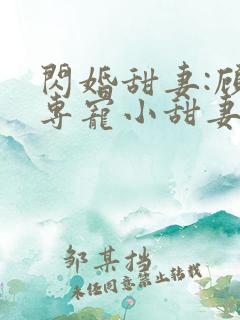 閃婚甜妻:顧
專寵小甜妻
邹某挡
未经同意禁止转载